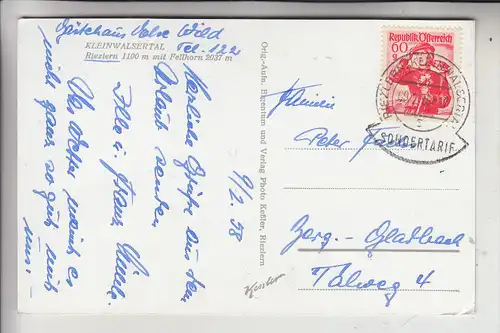 Gästehaus Wild
Tel. 122
KLEINWALSERTAL
Riezlern 1100 m mit Fellhorn 2037 m
9/2. 58
Herzliche Grüße aus dem
Urlaub senden
Frau
Wetter meint es
nicht ganz so gut mit
uns.-
Orig.-Aufn. Eigentum und Verlag Photo Keßler, Riezlern
Kessler
Republik Österreich
60 g
RIEZLERN KLEINWALSERTAL
SONDERTARIF
Familie
Peter
Berg.-Gladbach
Talweg 4